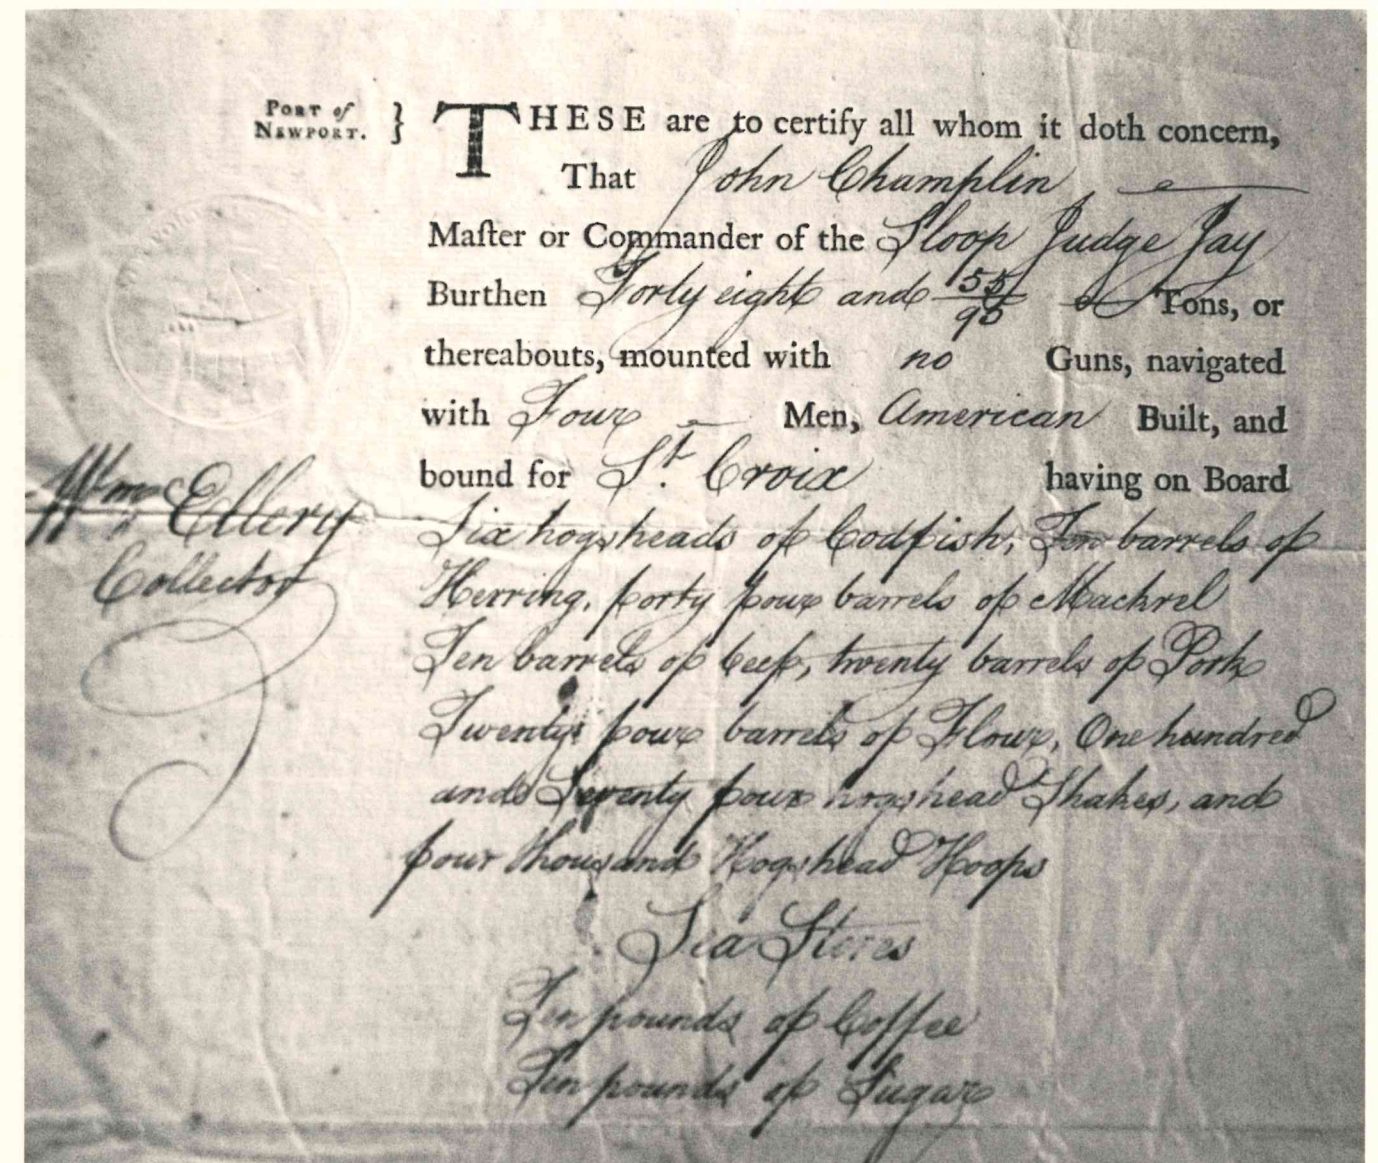 PORT of
NEWPORT. }
THESE are to certify all whom it doth concern,
That John Champlin
Maſter or Commander of the Sloop Judge Jay
Burthen Forty eight and 55/95 Tons, or
thereabouts, mounted with no Guns, navigated
with Four Men, American Built, and
bound for St. Croix having on Board
Wm Ellery
Collector
Six hogsheads of Codfish, Ten barrels of
Herring, forty four barrels of Mackrel
Ten barrels of beef, twenty barrels of Pork
Twenty four barrels of Flour, One hundred
and Seventy four hogshead Shakes, and
four thousand Hogshead Hoops
Sea Stores
Ten pounds of Coffee
Ten pounds of Sugar